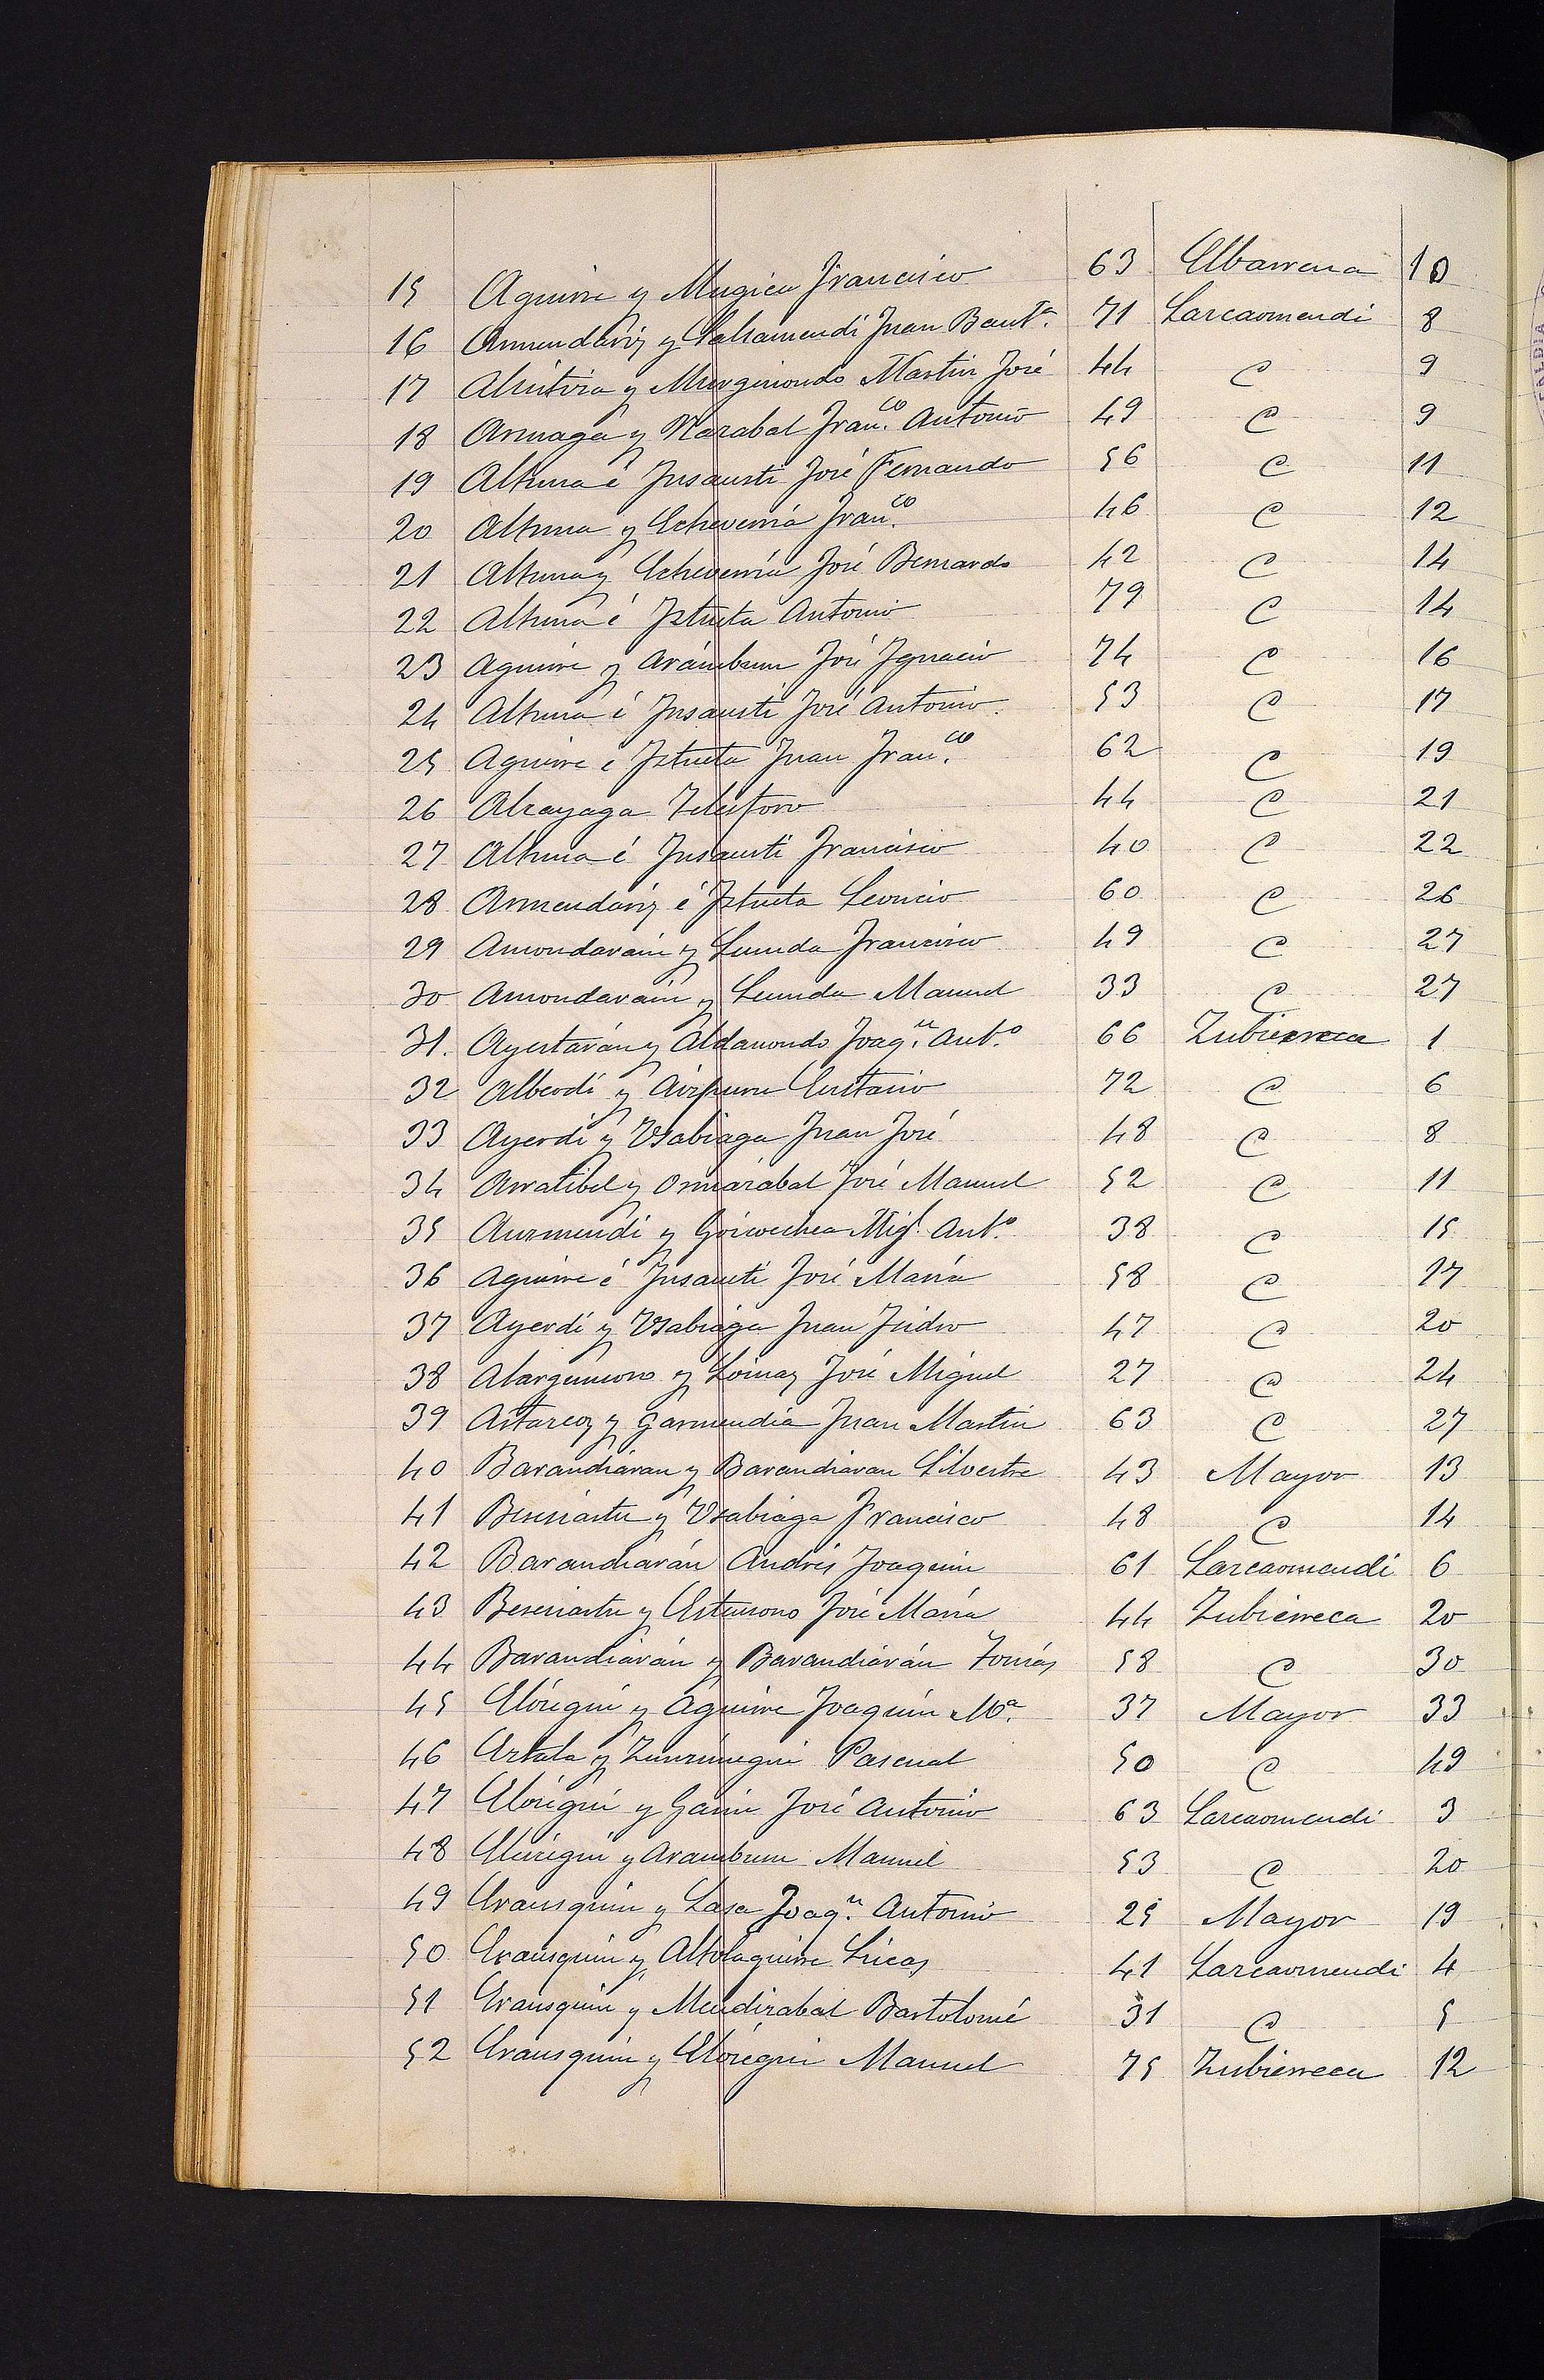 15 Aguirre y Mugica Francisco 63 Elbarrena 10
16 Armendáriz y Salsamendi Juan Bautª. 71 Larcaomendi 8
17 Alustiza y Murguiondo Martin José 44 C 9
18 Arruaga y Narabal Franco. Antonio 49 C 9
19 Altuna é Insausti José Fernando 56 C 11
20 Altuna y Echeverría Franco. 46 C 12
21 Altuna y Echeverría José Bernardo 42 C 14
22 Altuna é Iztueta Antonio 79 C 14
23 Aguirre y Arámburu José Ignacio 74 C 16
24 Altuna é Insausti José Antonio. 53 C 17
25 Aguirre é Iztueta Juan Franco. 62 C 19
26 Alzayaga Telesforo 44 C 21
27 Altuna é Insausti Francisco 40 C 22
28 Armendáriz é Iztueta Leoncio 60 C 26
29 Amondarain y Lasunda Francisco 49 C 27
30 Amondaráin y Manuel 33 C 27
31. Ayestarán y Aldanondo Joaqn. Antº. 66 Zubierreca 1
32 Alberdi y Aizpuru Eustasio 72 C 6
33 Ayerdi y Usabiaga Juan José 48 C 8
34 Arratibel y Ormázabal José Manuel 52 C 11
35 Aurmendi y Goicoechea Migl. Antº. 38 C 15
36 Aguirre é Insausti José María 58 C 17
37 Ayerdi y Usabiaga Juan Isidro 47 C 20
38 Alargunsoro y Loinaz José Miguel 27 C 24
39 Astarcoz y Garmendia Juan Martin 63 C 27
40 Barandiaran y Barandiaran Silvestre 43 Mayor 13
41 Bereciartu y Usabiaga Francisco 48 C 14
42 Barandiarán Andrés Joaquin 61 Larcaomendi 6
43 Bereciartu y Estensoro José María 44 Zubierreca 20
44 Barandiarán y Barandiarán Tomás 58 C 30
45 Elóregui y Aguirre Joaquín Mª. 37 Mayor 33
46 y Pascual 50 C 49
47 Elóregui y Garin José Antonio 63 Larcaomendi 3
48 Elóregui y Aramburu Manuel 53 C 20
49 Erausquin y Lasa Joaqn. Antonio 25 Mayor 19
50 Erausquin y Altolaguirre Lúcas 41 Larcaomendi 4
51 Erausquin y Mendizabal Bartolomé 31 C 5
52 Erausquin y Elóregui Manuel 75 Zubierreca 12